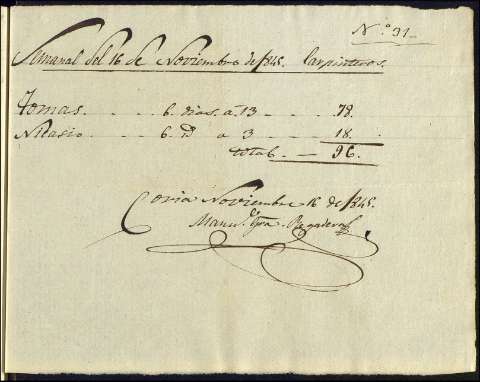 N.º 91
Semanal del 16 de Noviembre de 1845. Carpinteros.
Tomas. 6. dias. a. 13 78.
Nicasio 6. id a 3 18.
total. 96.
Coria Noviembre 16 de 1845.
Manu.